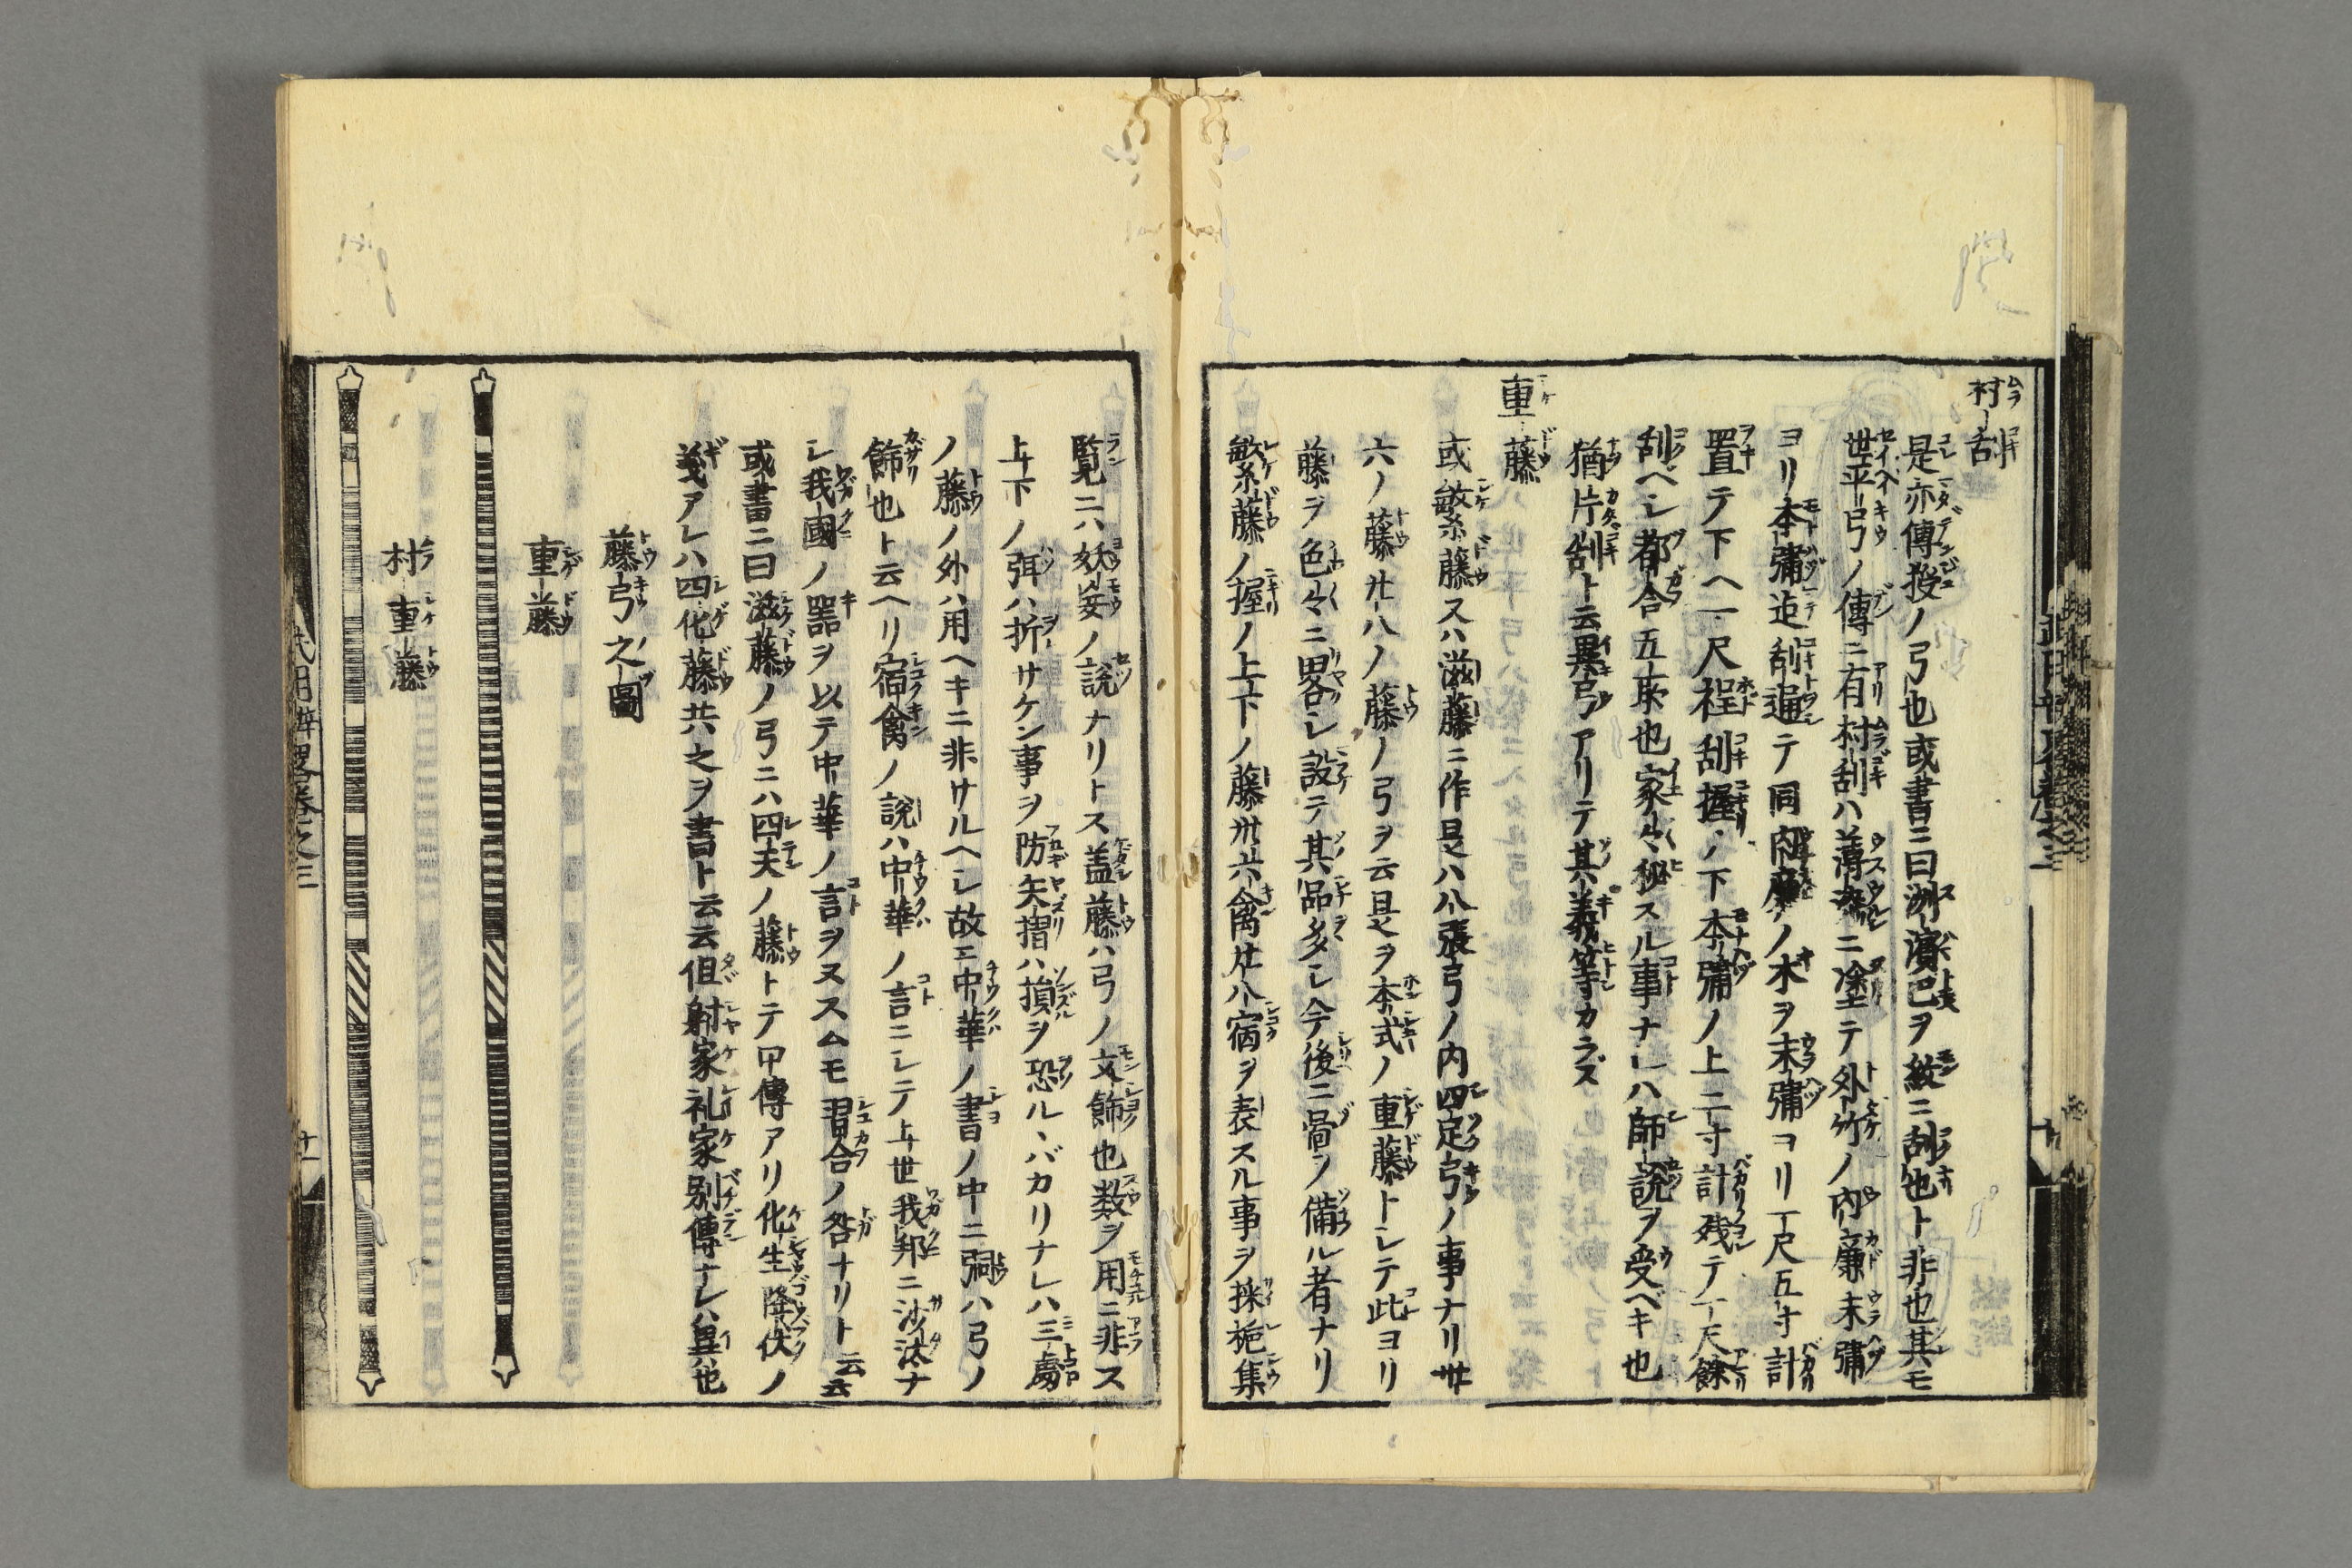 村刮
是亦傳授ノ弓也或書ニ曰洲濱巴ヲ紋ニ刮也ト非也其モ
世平弓ノ傳ニ有村刮ハ薄漆ニ塗テ外竹ノ内廉末彇
ヨリ本彇迠刮通テ同内廉ノ木ヲ末彇ヨリ一尺五寸計
置テ下ヘ一尺程刮握ノ下本彇ノ上二寸計残テ一尺餘
刮ベシ都合五所也家々秘スル事ナレハ師説ヲ受ベキ也
猶片刮ト云異弓アリテ其義等カラズ
重藤
或繁藤又ハ滋藤ニ作是ハ八張弓ノ内四足弓ノ事ナリ卅
六ノ藤廿八ノ藤ノ弓ヲ云是ヲ本式ノ重藤トシテ此ヨリ
藤ヲ色々ニ畧シ設テ其品多シ今後ニ啚ノ備ル者ナリ
繁藤ノ握ノ上下ノ藤卅六禽廿八宿ヲ表スル事ヲ採摭集
覧ニハ妖妄ノ説ナリトス盖藤ハ弓ノ文飾也数ヲ用ニ非ス
上下ノ弭ハ折サケン事ヲ防矢摺ハ損ヲ恐ルヽバカリナレハ三處
ノ藤ノ外ハ用ヘキニ非サルヘシ故ニ中華ノ書ノ中ニ弼ハ弓ノ
飾也ト云ヘリ宿禽ノ説ハ中華ノ言ニシテ上世我邦ニ沙汰ナ
シ我國ノ噐ヲ以テ中華ノ言ヲヌスムモ習合ノ咎ナリト云云
或書ニ曰滋藤ノ弓ニハ四天ノ藤トテ口傳アリ化生降伏ノ
義アレハ四化藤共之ヲ書ト云云但射家礼家別傳ナレハ異也
藤弓之圖
重藤
村重藤